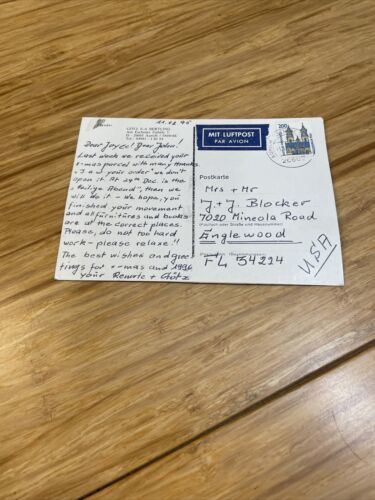 11.12.95
GÖTZ E.A. BERTLING
Dear Joyce! Dear John!
Last week we received your
x-mas parcel with many thanks.
"I a d your order" we don't
open it. At 24th Dec. is the
"Heilige Abend", then we
will do it - We hope, you
finished your movement
and all furnitures and books
are at the correct places.
Please, do not too hard
work - please relaxe!!
The best wishes and gree-
tings for x-mas and 1996
your Renate + Götz
MIT LUFTPOST
PAR AVION
200
Postkarte
Mrs + Mr
J. + J. Blocker
7020 Mineola Road
(Postfach oder Straße und Hausnummer)
Englewood
FL 54224
USA